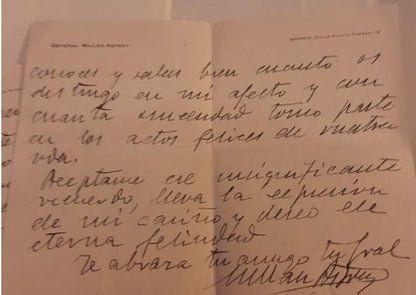 GENERAL MILLÁN-ASTRAY
MADRID, CALLE
conoces y sabes bien cuanto os
distingo en mi afecto y con
cuanta sinceridad tomo parte
en los actos felices de vuestra
vida.
Aceptame ese insignificante
recuerdo, lleva la expresion
de mi cariño y deseo de
eterna felicidad
Te abraza tu amigo y tu Gral
Millan Astray